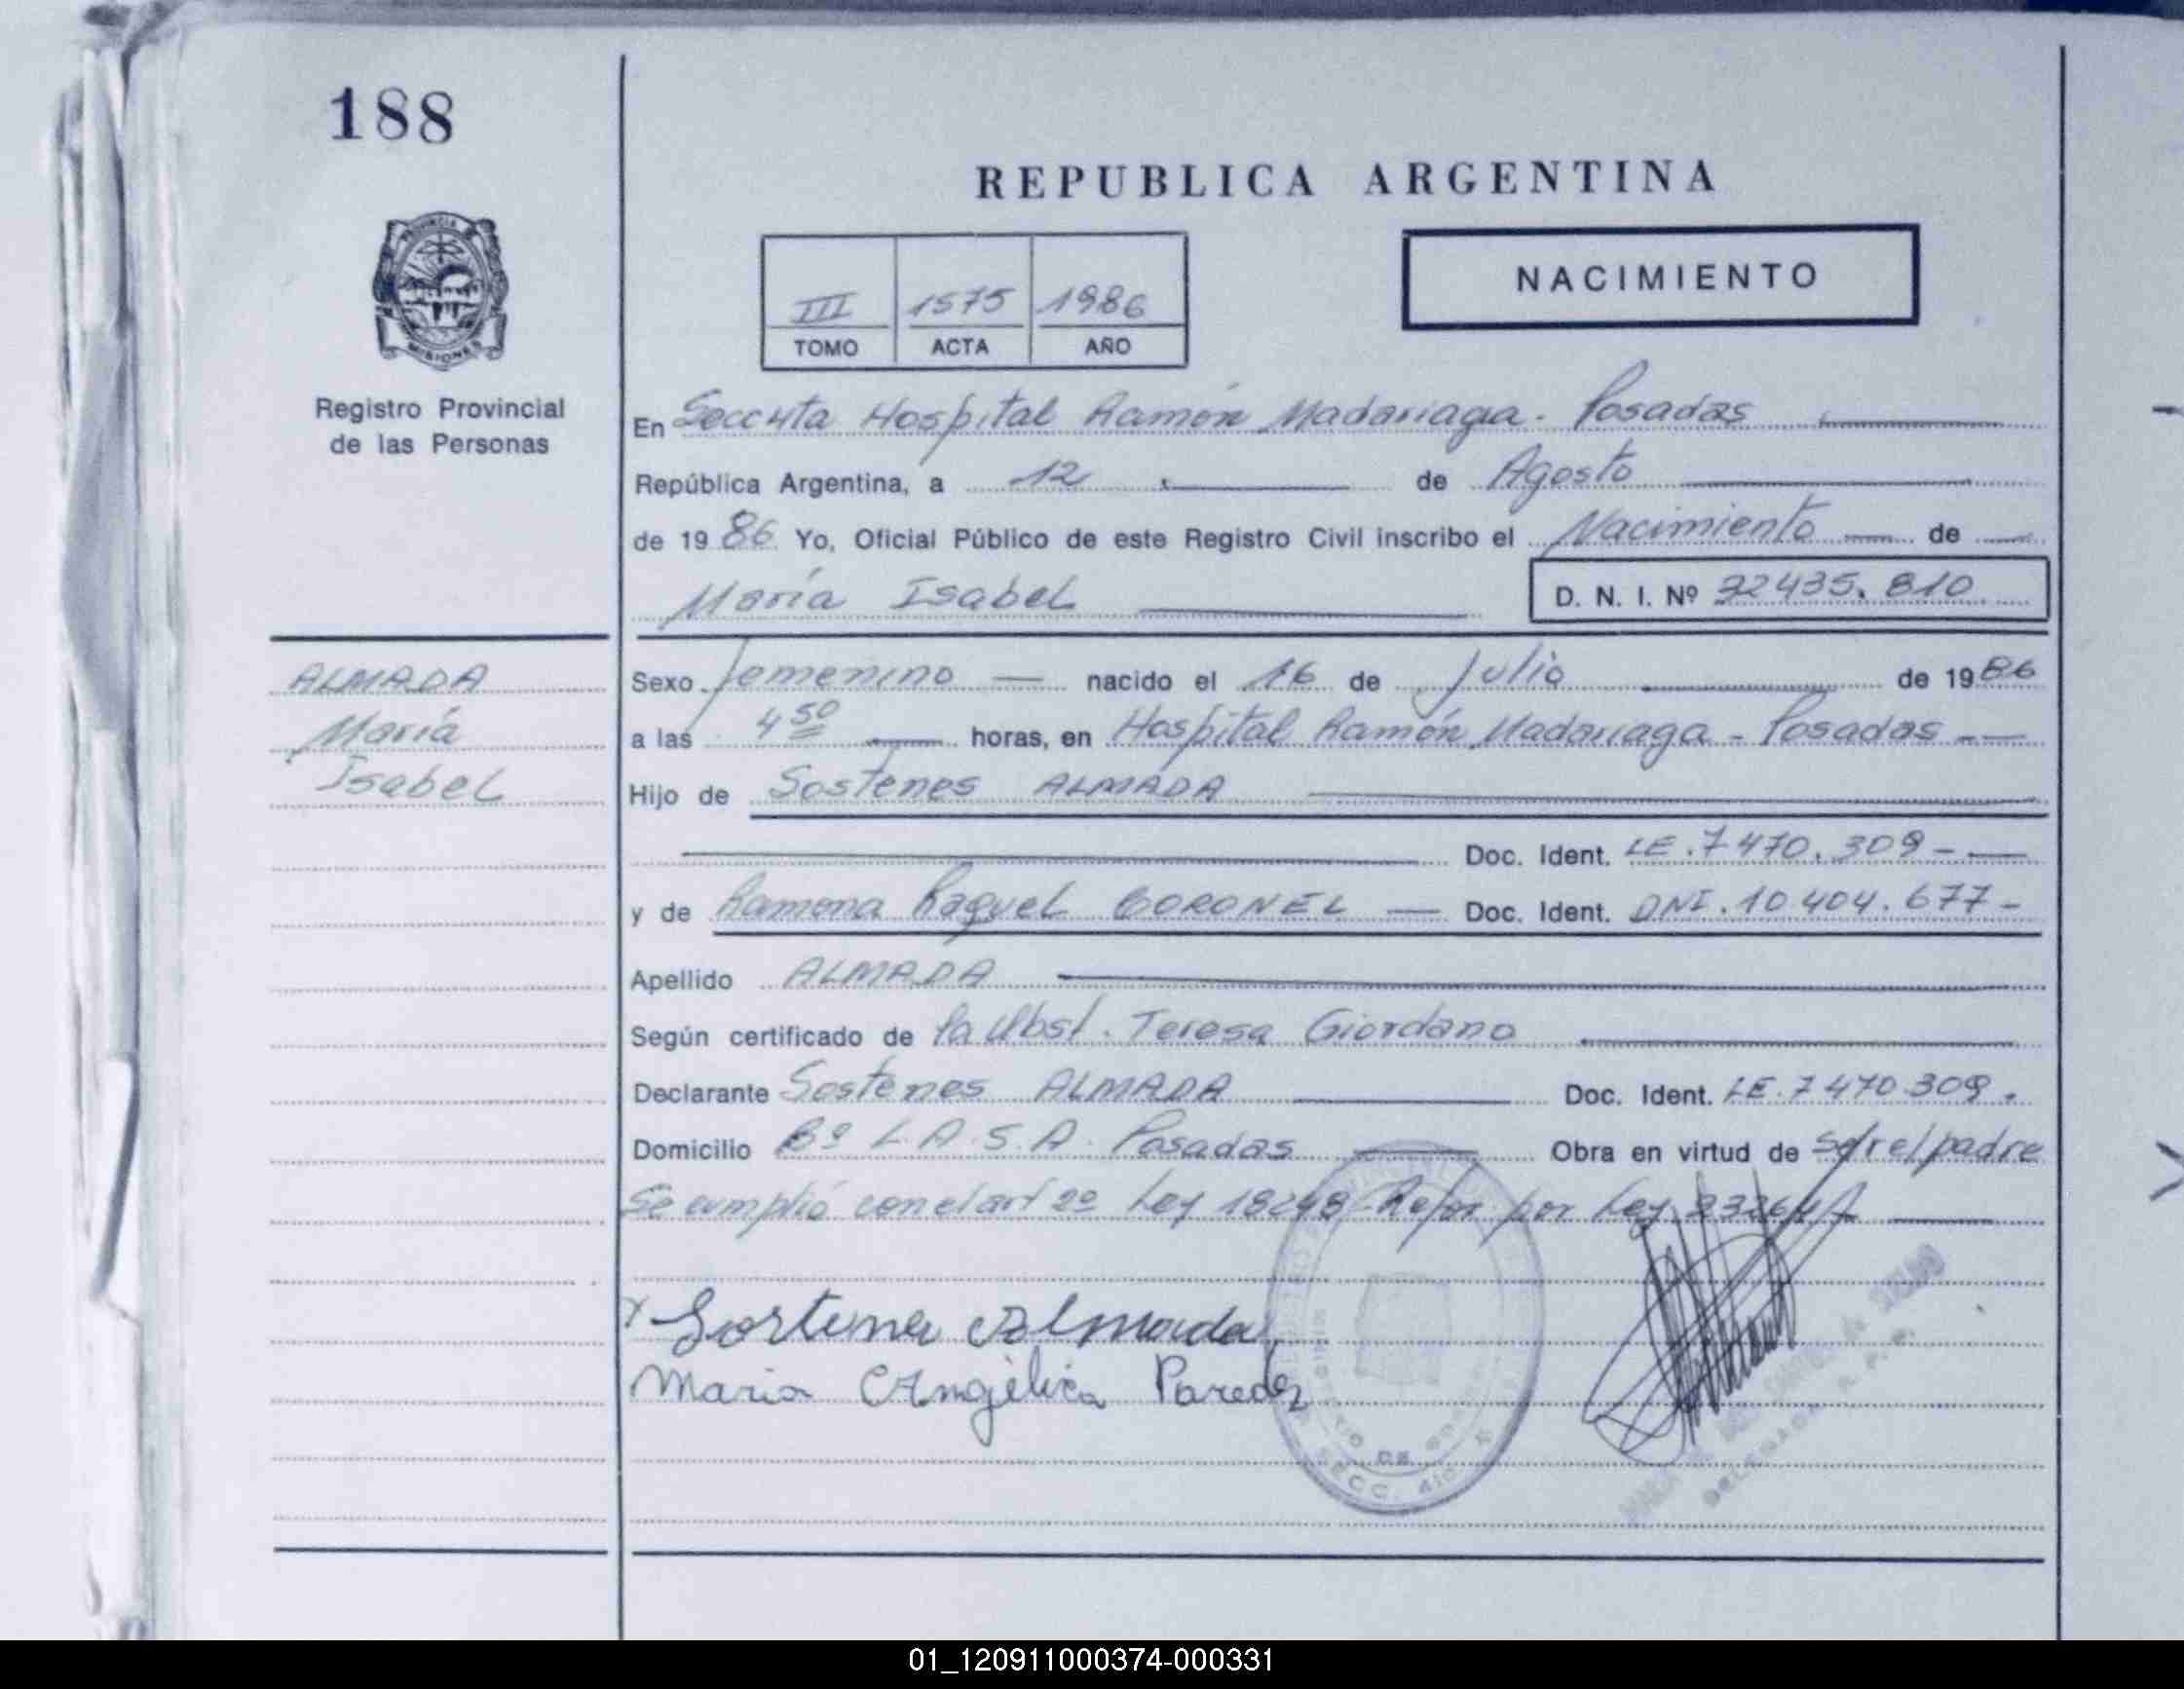 188
REPUBLICA ARGENTINA
PROVINCIA DE
MISIONES
III 1575 1986
TOMO ACTA AÑO
NACIMIENTO
Registro Provincial
de las Personas
En Secc 4ta Hospital Ramón Madariaga - Posadas
República Argentina, a 12 de Agosto
de 1986 Yo, Oficial Público de este Registro Civil inscribo el Nacimiento de
María Isabel D. N. I. Nº 32435.810
ALMADA
María
Isabel
Sexo femenino nacido el 16 de Julio de 1986
a las 4 50 horas, en Hospital Ramón Madariaga - Posadas
Hijo de Sostenes ALMADA
Doc. Ident. LE.7470.309
y de Ramona Raquel CORONEL Doc. Ident. DNI.10.404.677
Apellido ALMADA
Según certificado de la Obst. Teresa Giordano
Declarante Sostenes ALMADA Doc. Ident. LE.7470309.
Domicilio Bº L.A.S.A. Posadas Obra en virtud de ser el padre
Se cumplió con el art 2º Ley 18248 Refor por Ley 23264
x Sostenes Almada
Maria Angélica Paredez
SECC. 4ta
01_120911000374-000331